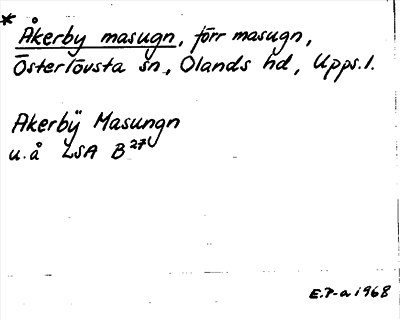 * Åkerby masugn, förr masugn,
Österlövsta sn., Olands hd, Upps.l.
Akerbÿ Masungn
u.å LSA B 27
E.P-a 1968